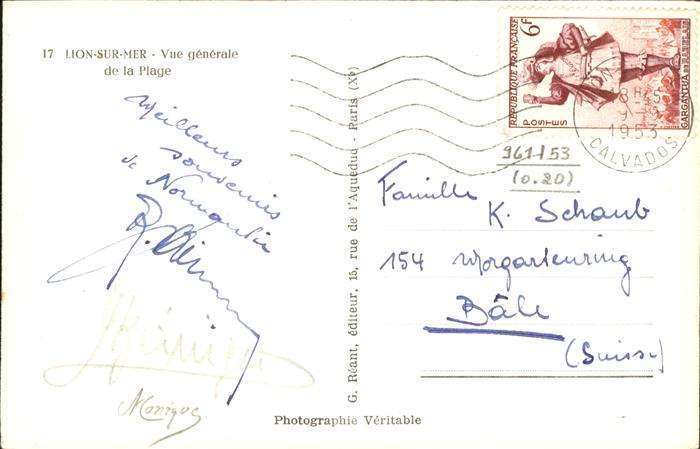 17 LION-SUR-MER - Vue générale
de la Plage
Meilleurs
souvenirs
de Normandie
Monique
Photographie Véritable
G. Réant, éditeur, 15, rue de l'Aqueduc - Paris (Xe)
6F
REPUBLIQUE FRANÇAISE
POSTES
GARGANTUA
1953
CALVADOS
961-1/53
(0.20)
Famille
K. Schaub
154 Morgartenring
Bâle
(Suisse)